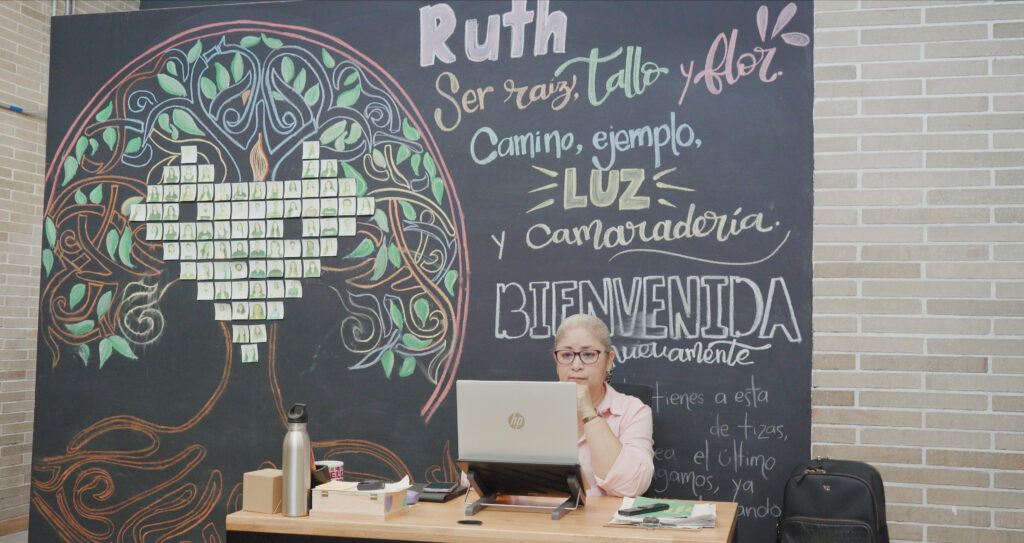 Ruth
Ser raíz, tallo y flor.
Camino, ejemplo,
LUZ
y camaradería.
BIENVENIDA
nuevamente
tienes a esta
de tizas,
el último
gamos, ya
ando
hp